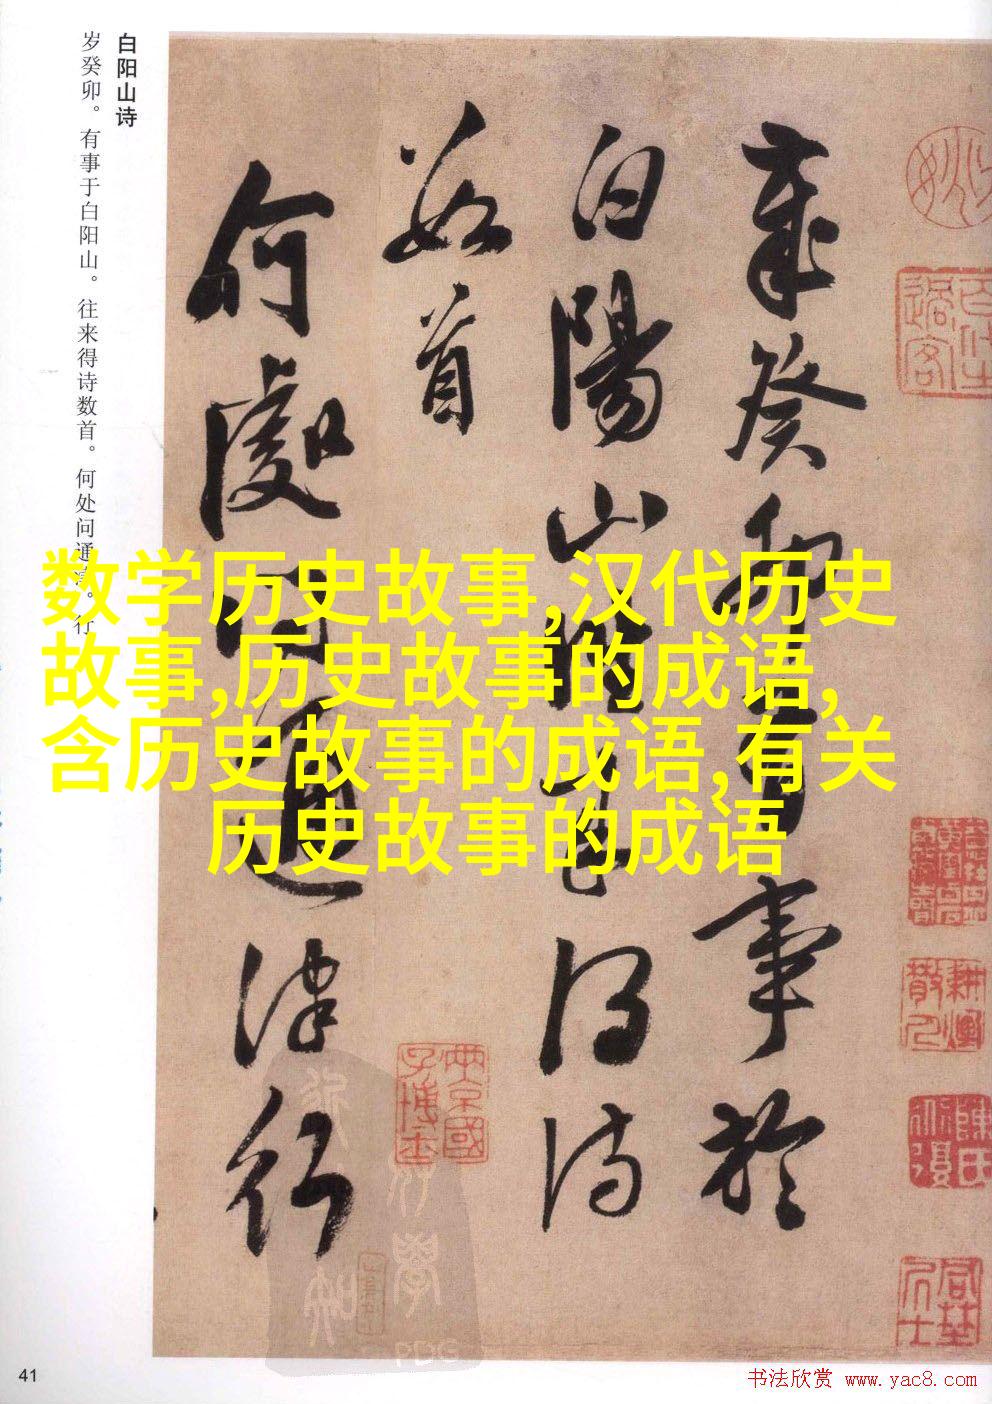 白阳山诗
岁癸卯。有事于白阳山。往来得诗数首。何处问通津。行
歲癸卯有事於
白陽山往来得诗
数首
何處问通津行
数学历史故事,汉代历史
故事,历史故事的成语,
含历史故事的成语,有关
历史故事的成语
41
书法欣赏 www.yac8.com